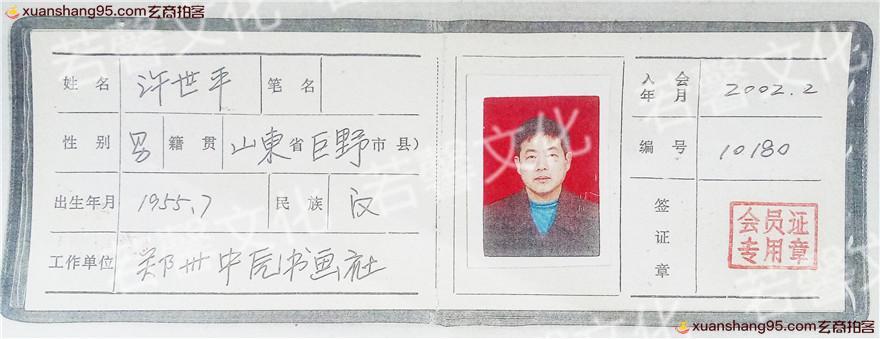 xuanshang95.com玄商拍客
xuanshang95.com玄商拍客
姓名 许世平 笔名
性别 男 籍贯 山東省巨野市县)
出生年月 1955.7 民族 汉
工作单位 郑州中原书画社
入会年月 2002.2
编号 10180
签证章
会员证
专用章
若馨文化
xuanshang95.com玄商拍客